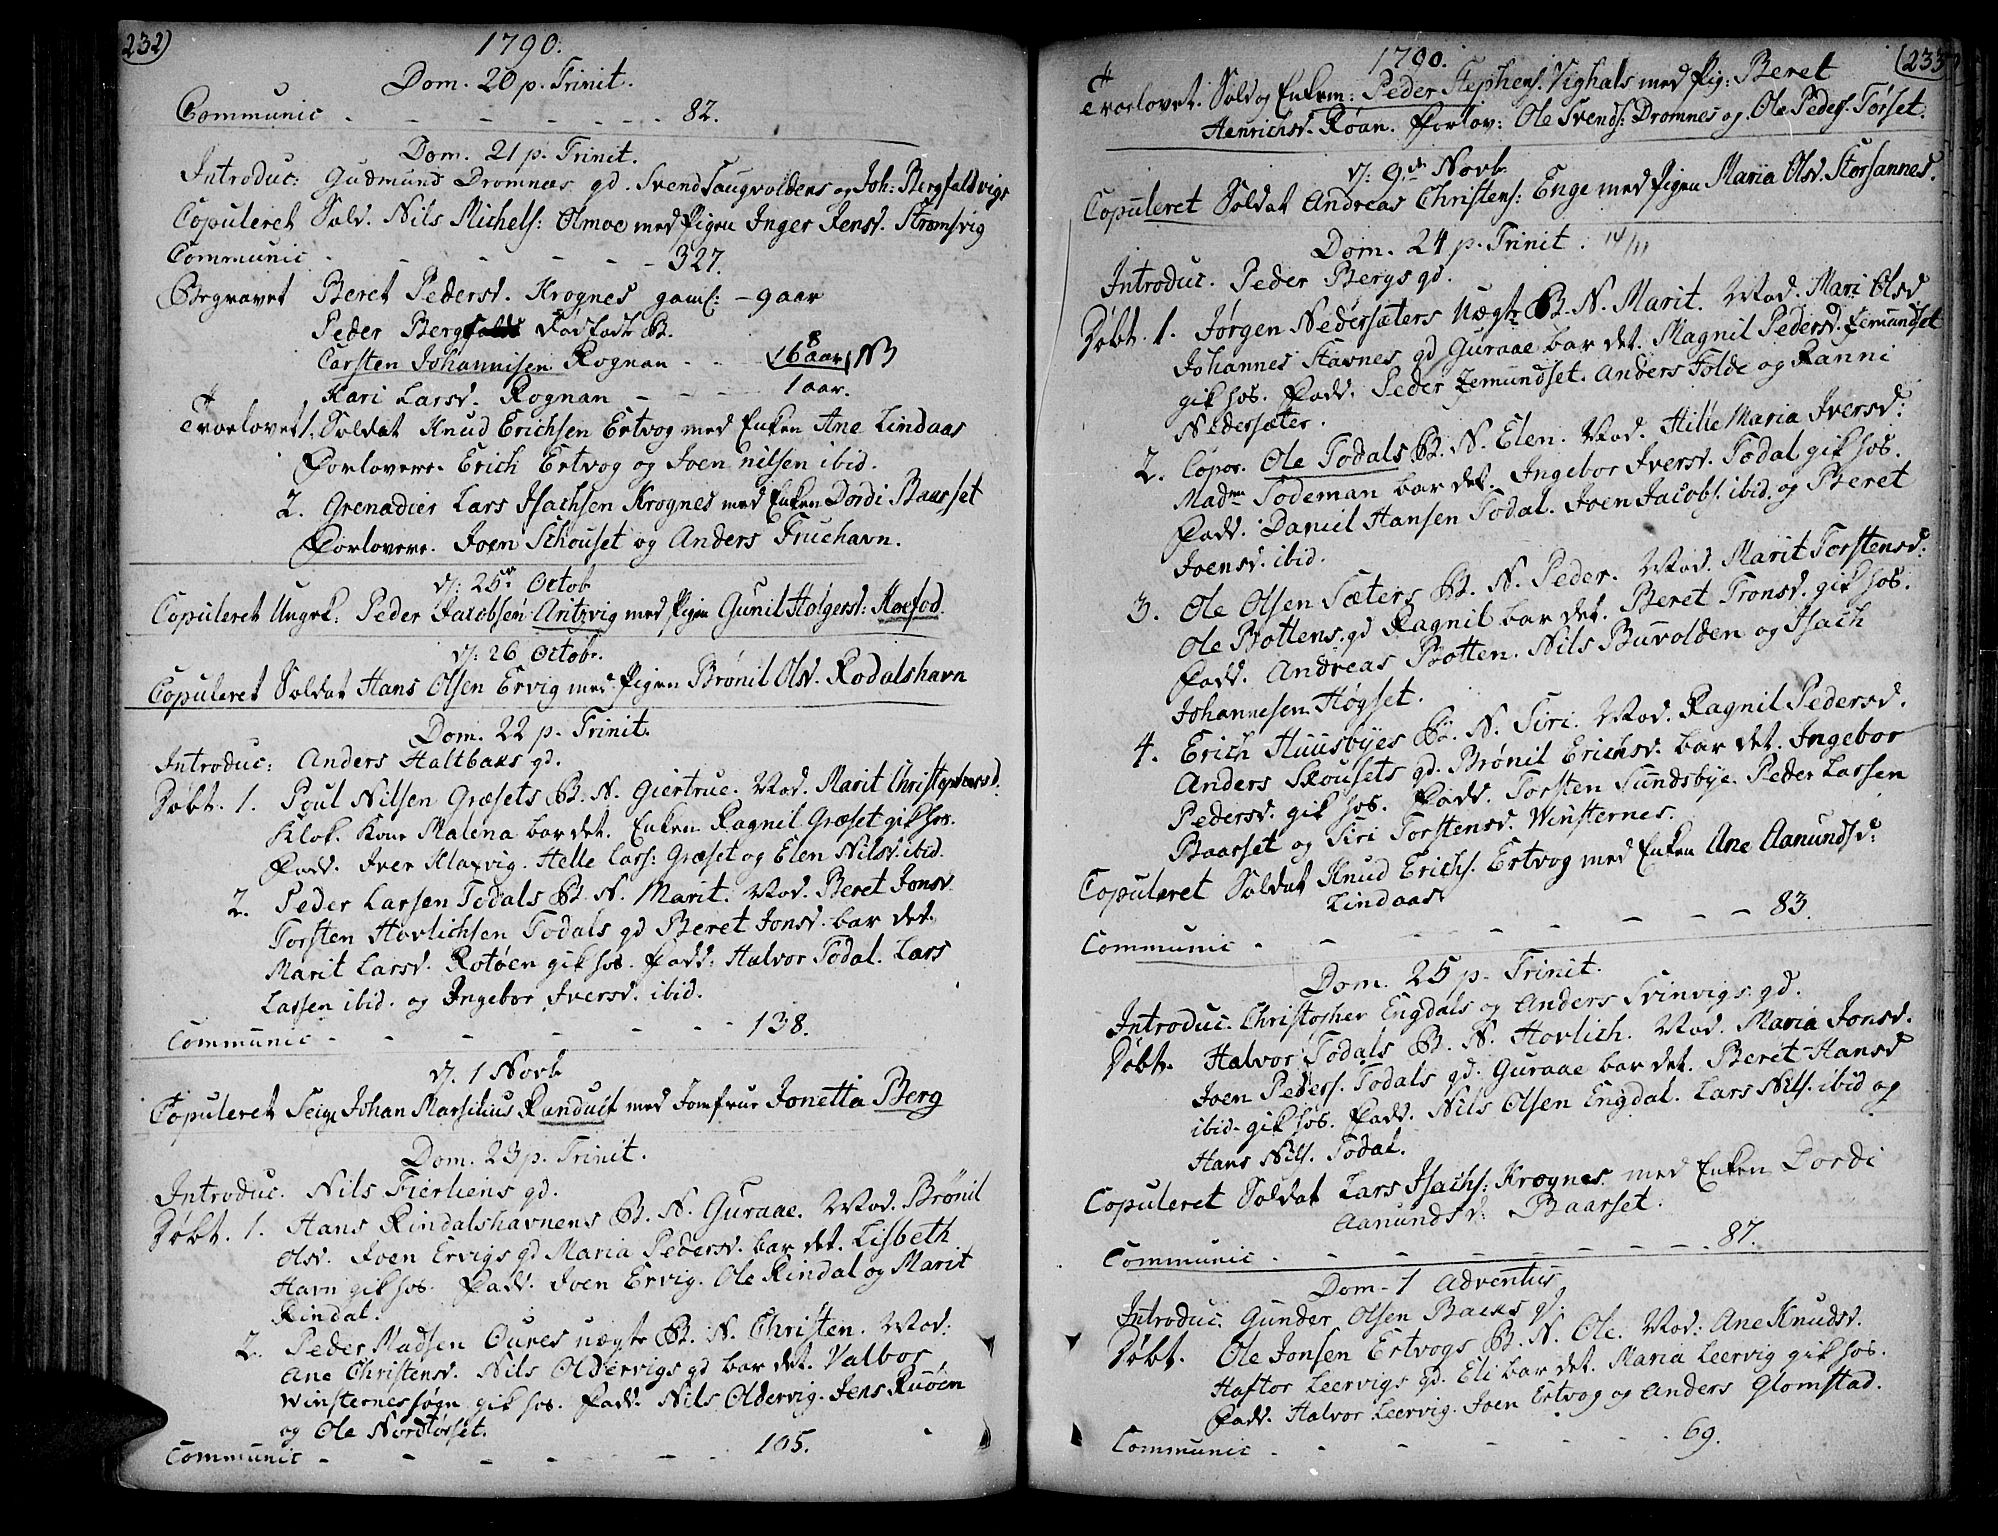 232)
1790.
Dom. 20 p. Trinit.
Communic - - - - - - - 82.
Dom. 21 p. Trinit.
Introduc: Gudmund Dromnæs gd. Svend Saugvoldens og Joh: Bergfaldvigs
Copuleret Sold. Nils Michels: Olmoe med Pigen Inger Jensd. Strømsvig
Communic - - - - - - 327.
Begravet Beret Pedersd. Krognes gaml: - 9 aar
Peder Berg Dødfødt B.
Carsten Johannisen Rognan - - 16 aar NB
Kari Larsd. Rognan - - - - 1 aar.
Trorlovet 1. Soldat Knud Erichsen Ertvog med Enken Ane Lindaas
Forlovere. Erich Ertvog og Joen Nilsen ibid.
2. Grenadier Lars Isachsen Krognes med Enken Dordi Baarset
Forlovere. Joen Schouset og Anders Fruehavn.
d: 25 Octob
Copuleret Ungk: Peder Jacobsen Aritzvig med Pigen Gunil Holgersd: Koefod.
d: 26 Octobr.
Copuleret Soldat Hans Olsen Ervig med Pigen Brønil Olsd. Rodalshavn
Dom. 22 p. Trinit.
Introduc: Anders Haltbaks gd.
Døbt. 1. Poul Nilsen Græsets B. N. Giertrue. Mod. Marit Christophersd.
Klok. Kone Malena bar det. Enken Ragnil Græset gik hos.
Fadd. Iver Klaxvig. Helle Lars: Græset og Elen Nilsd. ibid.
2. Peder Larsen Todals B. N. Marit. Mod. Beret Jonsd.
Torsten Hovlichsen Todals gd Beret Jonsd. bar det.
Marit Larsd. Rotøen gik hos. Fadd: Halvor Todal. Lars
Larsen ibid. og Ingebor Iversd. ibid.
Communic - - - - - - - 138.
d. 1 Novb
Copuleret Seig Johan Marsilius Randuit med Jomfrue Jonetta Berg
Dom. 23 p. Trinit.
Introduc. Nils Fierliens gd.
Døbt. 1. Hans Rindalshavnens B. N. Guraae. Mod. Brønil
Olsd. Joen Ervigs gd Maria Pedersd. bar det. Lisbeth
Havn gik hos. Fadd. Joen Ervig. Ole Rindal og Marit
Rindal.
2. Peder Madsen Oures uægte B. N. Christen. Mod:
Ane Christensd. Nils Oldervigs gd bar det. Valbor
Winsternes søgn gik hos. Fadd. Nils Oldervig. Jens Ruøen
og Ole Nordtørset.
Communic - - - - - - 105.
1790.
(233
Trorlovet. Sold og Enkem: Peder Stephens. Vighals med Pig: Beret
Henrichsd. Roan. Forlov: Ole Svends: Dromnes og Ole Peders. Tørset.
d: 9de Novb
Copuleret Soldat Andreas Christens: Enge med Pigen Maria Olsd. Storsannes.
Dom. 24 p. Trinit. 14/11
Introduc. Peder Bergs gd.
Døbt. 1. Jørgen Nedersæters Uægte B. N. Marit. Mod. Mari Olsd
Johannes Stavnes gd Guraae bar det. Magnil Pedersd. Zemundset
gik hos. Fadd. Peder Zemundset. Anders Folde og Ranni
Nedersæter.
2. Copor. Ole Todals B. N. Elen. Mod. Hille Maria Iversd:
Madm Todeman bar det. Ingebor Iversd. Todal gik hos.
Fadd. Daniel Hansen Todal. Joen Jacobs. ibid. og Beret
Joensd. ibid.
3. Ole Olsen Sæters B. N. Peder. Mod. Marit Torstensd:
Ole Bottens gd Ragnil bar det. Beret Tronsd. gik hos.
Fadd. Andreas Botten. Nils Buvolden og Isach
Johannesen Høgset.
4. Erich Huusbyes B. N. Siri. Mod. Ragnil Pedersd.
Anders Skousets gd. Brønil Erichsd. bar det. Ingebor
Pedersd. gik hos. Fadd. Torsten Sundsbye. Peder Larsen
Baarset og Siri Torstensd. Winsternes.
Copuleret Soldat Knud Erichs. Ertvog med Enken Ane Aanundsd:
Lindaas
Communic - - - - - - - 83.
Dom. 25 p. Trinit.
Introduc. Christopher Engdals og Anders Svinvigs gd.
Døbt. Halvor Todals B. N. Hovlich. Mod. Maria Jonsd.
Joen Peders. Todals gd. Guraae bar det. Beret Hansd
ibid. gik hos. Fadd. Nils Olsen Engdal. Lars Nils. ibid og
Hans Nils. Todal.
Copuleret Soldat Lars Isachs: Krognes med Enken Dordi
Aanundsd: Baarset.
Communic - - - - - - - 87.
Dom. 1 Adventus
Introduc. Gunder Olsen Backs gd.
Døbt. Ole Jonsen Ertvogs B. N. Ole. Mod: Ane Knudsd.
Haftor Leervigs gd. Eli bar det. Maria Leervig gik hos.
Fadd. Halvor Leervig. Joen Ertvog og Anders Glomstad.
Communic - - - - - - 69.